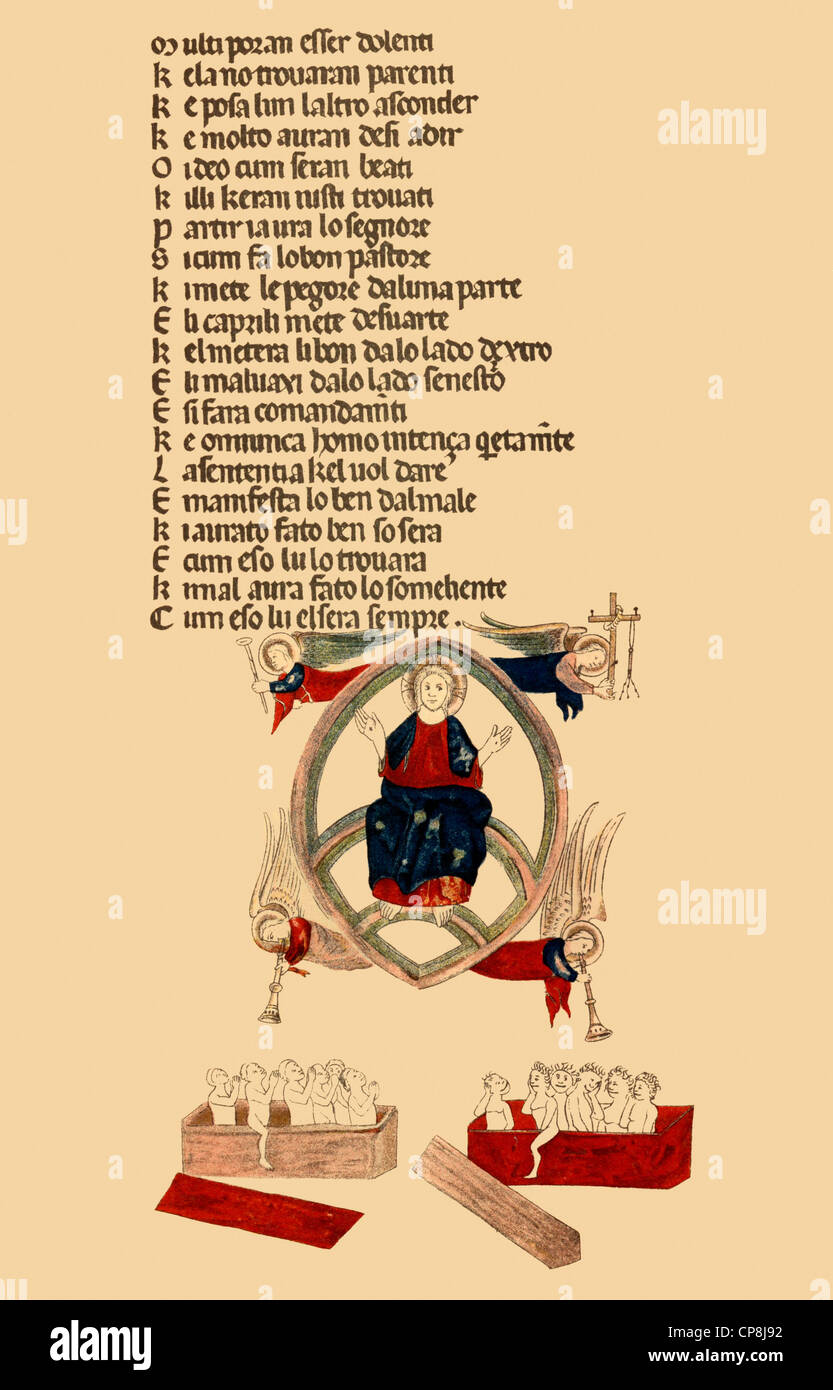 M ulti poran esser dolenti
k ela no trovaran parenti
k e posa lun laltro asconder
k e molto auran desi adir
O ideo cum seran beati
k illi keran iusti trovati
P artir ia ura lo segnore
S icum fa lo bon pastore
k i mete le pegore da luna parte
E li caprili mete desuarte
k el metera li bon da lo lado dextro
E li maluaxi da lo lado senestro
E si fara comandam̄ti
k e omiunca homo intença q̄etam̄te
L a sententia kel uol dare
E manifesta lo ben dal male
k i aurato fato ben so sera
E cum eso lu lo trouara
k i mal aura fato lo somehente
C um eso lu el sera sempre .
alamy
a
alamy
a
a
alamy
a
a
a
alamy
a
a
a
alamy
Image ID: CP8J92
www.alamy.com